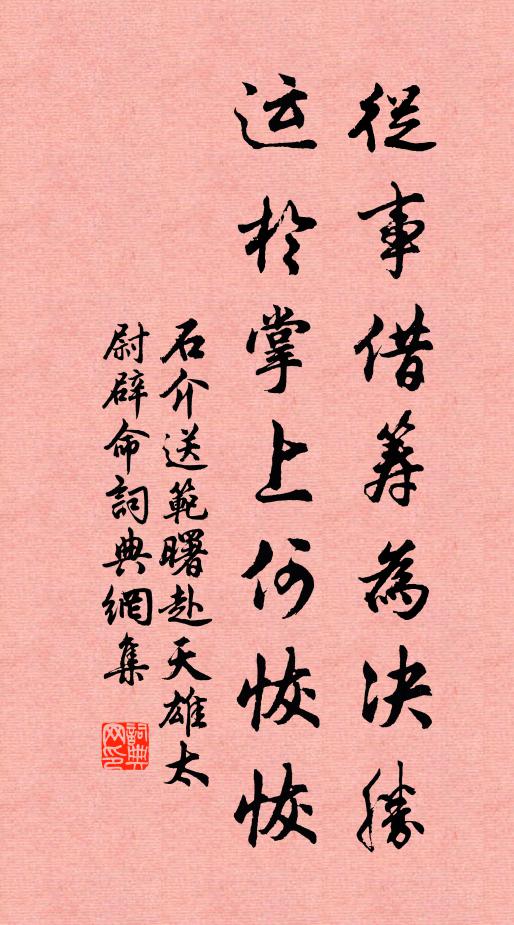 從事借筹為决勝
运於掌上何恢恢
石介送範曙赴天雄太
尉辟命詞典網集
詞典网印